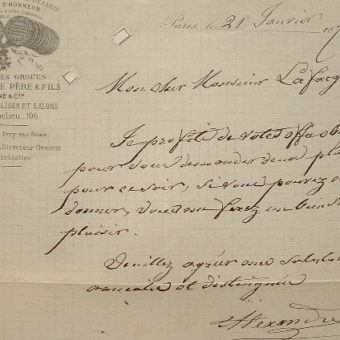 DE PARIS
D'HONNEUR
ORGUES
PÈRE & FILS
NE & Cie
LISES ET SALONS
elieu, 106.
Ivry-sur-Seine
Directeur Général
brication
Paris, le 21 Janvier 18
Monsieur Monsieur Lafarg
Je profite de votre
pour vous demander deux pla
pour ce soir, si vous pouvez
donner, vous me ferez un bien
plaisir.
Veuillez agréer mes saluta
et distinguée
Alexandre